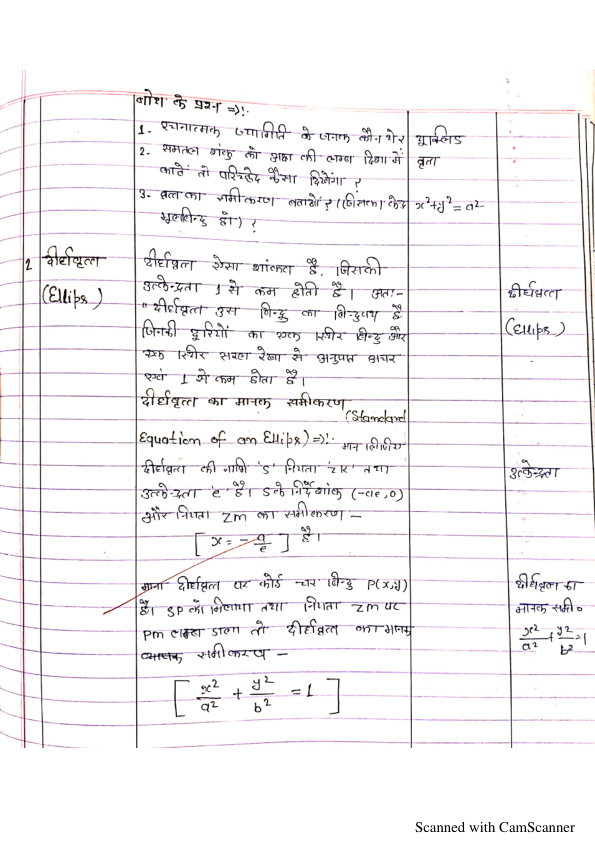 बोध के प्रश्न ⇒:-
1- रचनात्मक ज्यामिति के जनक कौन थे? यूक्लिड
2- समतल शंकु को अक्ष की लम्ब दिशा में वृत्त
काटें तो परिच्छेद कैसा दिखेगा ?
3- वृत्त का समीकरण बताओ ? (जिसका केन्द्र x²+y² = a²
मूलबिन्दु हो) ?
2 दीर्घवृत्त
(Ellips)
दीर्घवृत्त ऐसा शांकव है, जिसकी
उत्केन्द्रता 1 से कम होती है। अतः-
"दीर्घवृत्त उस बिन्दु का बिन्दुपथ है
जिनकी दूरियों का एक स्थिर बिन्दु और
एक स्थिर सरल रेखा से अनुपात अचर
एवं 1 से कम होता है।
दीर्घवृत्त
(Ellips)
दीर्घवृत्त का मानक समीकरण
(Standard
Equation of an Ellips) ⇒:- मान लीजिए
दीर्घवृत्त की नाभि 'S' नियता 'ZK' तथा
उत्केन्द्रता 'e' है। S के निर्देशांक (-ae,0)
और नियता ZM का समीकरण –
[ x = - a/e ] है।
उत्केन्द्रता
माना दीर्घवृत्त पर कोई चर बिन्दु P(x,y)
है। SP को मिलाया तथा नियता ZM पर
PM लम्ब डाला तो दीर्घवृत्त का मानक
व्यापक समीकरण –
[ x²/a² + y²/b² = 1 ]
दीर्घवृत्त का
मानक समी०
x²/a² + y²/b² = 1
Scanned with CamScanner